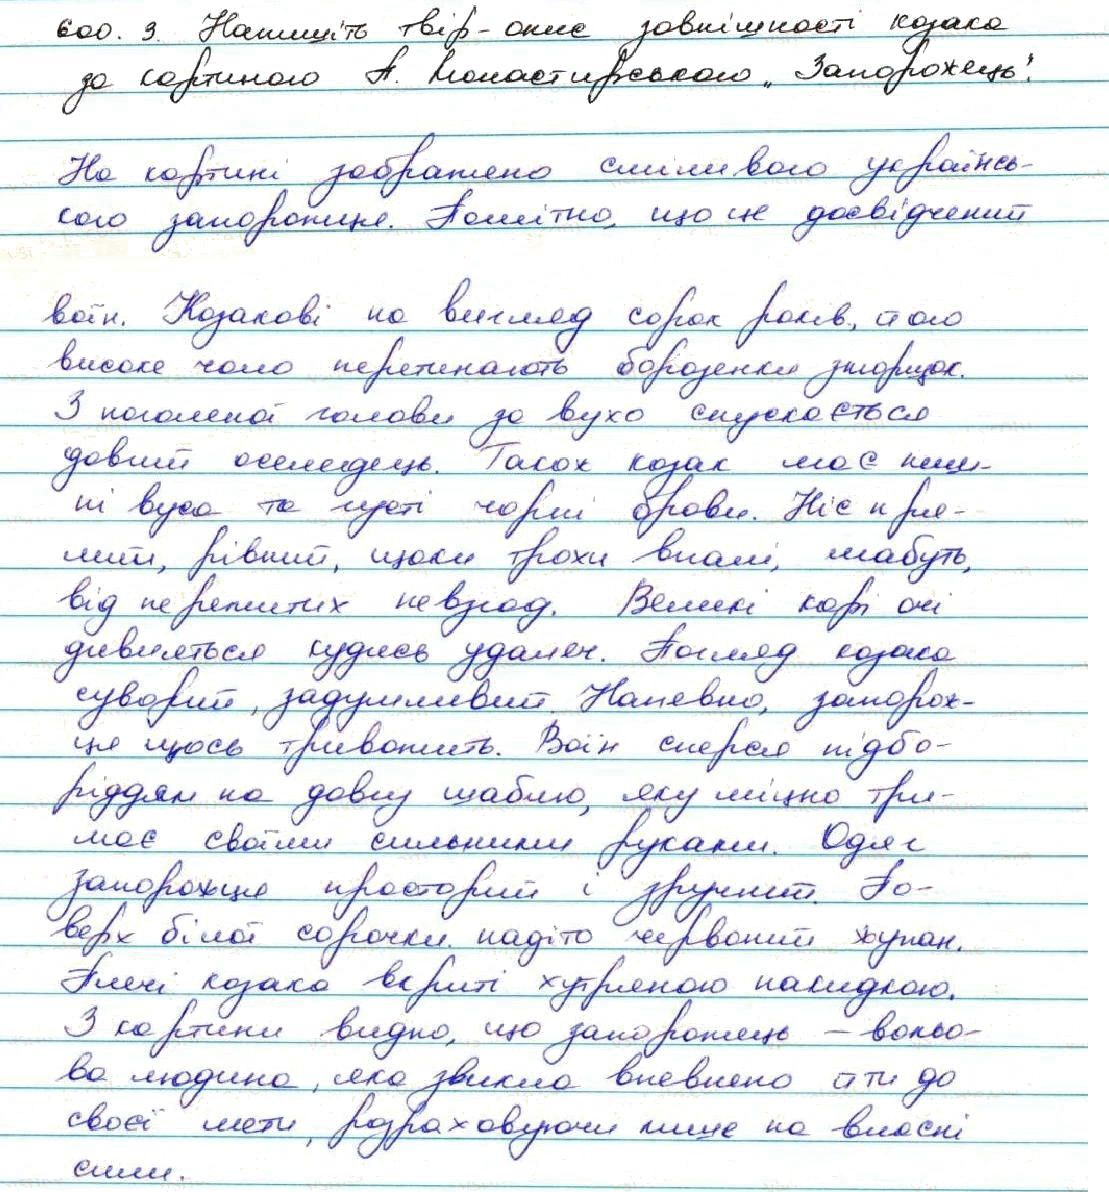 600. 3. Напишіть твір-опис зовнішності козака
за картиною А. Монастирського „Запорожець".
На картині зображено сміливого українсь-
кого запорожця. Помітно, що це досвідчений
воїн. Козакові на вигляд сорок років, його
високе чоло перетинають борозенки зморщок.
З поголеної голови за вухо спускається
довгий оселедець. Також козак має пиш-
ні вуса та густі чорні брови. Ніс пря-
мий, рівний, щоки трохи впалі, мабуть,
від пережитих невзгод. Великі карі очі
дивляться кудись удалеч. Погляд козака
суворий, задумливий. Напевно, запорож-
ця щось тривожить. Воїн сперся підбо-
ріддям на довгу шаблю, яку міцно три-
має своїми сильними руками. Одяг
запорожця просторий і зручний. По-
верх білої сорочки надіто червоний жупан.
Плечі козака вкриті хутряною накидкою.
З картини видно, що запорожець – вольо-
ва людина, яка звикла впевнено йти до
своєї мети, розраховуючи лише на власні
сили.